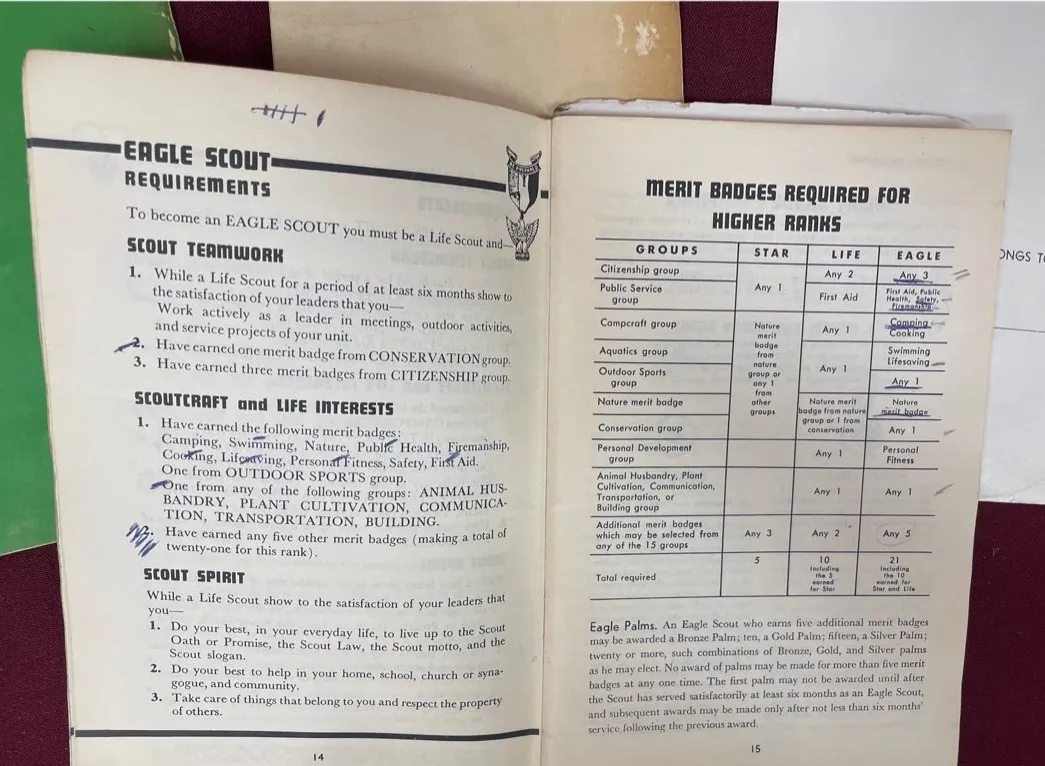 EAGLE SCOUT
REQUIREMENTS
To become an EAGLE SCOUT you must be a Life Scout and—
SCOUT TEAMWORK
1. While a Life Scout for a period of at least six months show to
the satisfaction of your leaders that you—
Work actively as a leader in meetings, outdoor activities,
and service projects of your unit.
2. Have earned one merit badge from CONSERVATION group.
3. Have earned three merit badges from CITIZENSHIP group.
SCOUTCRAFT and LIFE INTERESTS
1. Have earned the following merit badges:
Camping, Swimming, Nature, Public Health, Firemanship,
Cooking, Lifesaving, Personal Fitness, Safety, First Aid.
One from OUTDOOR SPORTS group.
One from any of the following groups: ANIMAL HUS-
BANDRY, PLANT CULTIVATION, COMMUNICA-
TION, TRANSPORTATION, BUILDING.
Have earned any five other merit badges (making a total of
twenty-one for this rank).
SCOUT SPIRIT
While a Life Scout show to the satisfaction of your leaders that
you—
1. Do your best, in your everyday life, to live up to the Scout
Oath or Promise, the Scout Law, the Scout motto, and the
Scout slogan.
2. Do your best to help in your home, school, church or syna-
gogue, and community.
3. Take care of things that belong to you and respect the property
of others.
14
MERIT BADGES REQUIRED FOR
HIGHER RANKS
GROUPS STAR LIFE EAGLE
Citizenship group Any 2 Any 3
Public Service
group
Any 1
First Aid
First Aid, Public
Health, Safety,
Firemanship
Campcraft group
Any 1
Camping
Cooking
Aquatics group
Swimming
Lifesaving
Outdoor Sports
group
Any 1
Any 1
Nature
merit
badge
from
nature
group or
any 1
from
other
groups
Nature merit badge
Nature merit
badge from nature
group or 1 from
conservation
Nature
merit badge
Conservation group
Any 1
Personal Development
group
Any 1
Personal
Fitness
Animal Husbandry, Plant
Cultivation, Communication,
Transportation, or
Building group
Any 1 Any 1
Additional merit badges
which may be selected from
any of the 15 groups
Any 3 Any 2 Any 5
Total required
5
10
Including
the 5
earned
for Star
21
Including
the 10
earned for
Star and Life
Eagle Palms. An Eagle Scout who earns five additional merit badges
may be awarded a Bronze Palm; ten, a Gold Palm; fifteen, a Silver Palm;
twenty or more, such combinations of Bronze, Gold, and Silver palms
as he may elect. No award of palms may be made for more than five merit
badges at any one time. The first palm may not be awarded until after
the Scout has served satisfactorily at least six months as an Eagle Scout,
and subsequent awards may be made only after not less than six months'
service following the previous award.
15
ONGS T